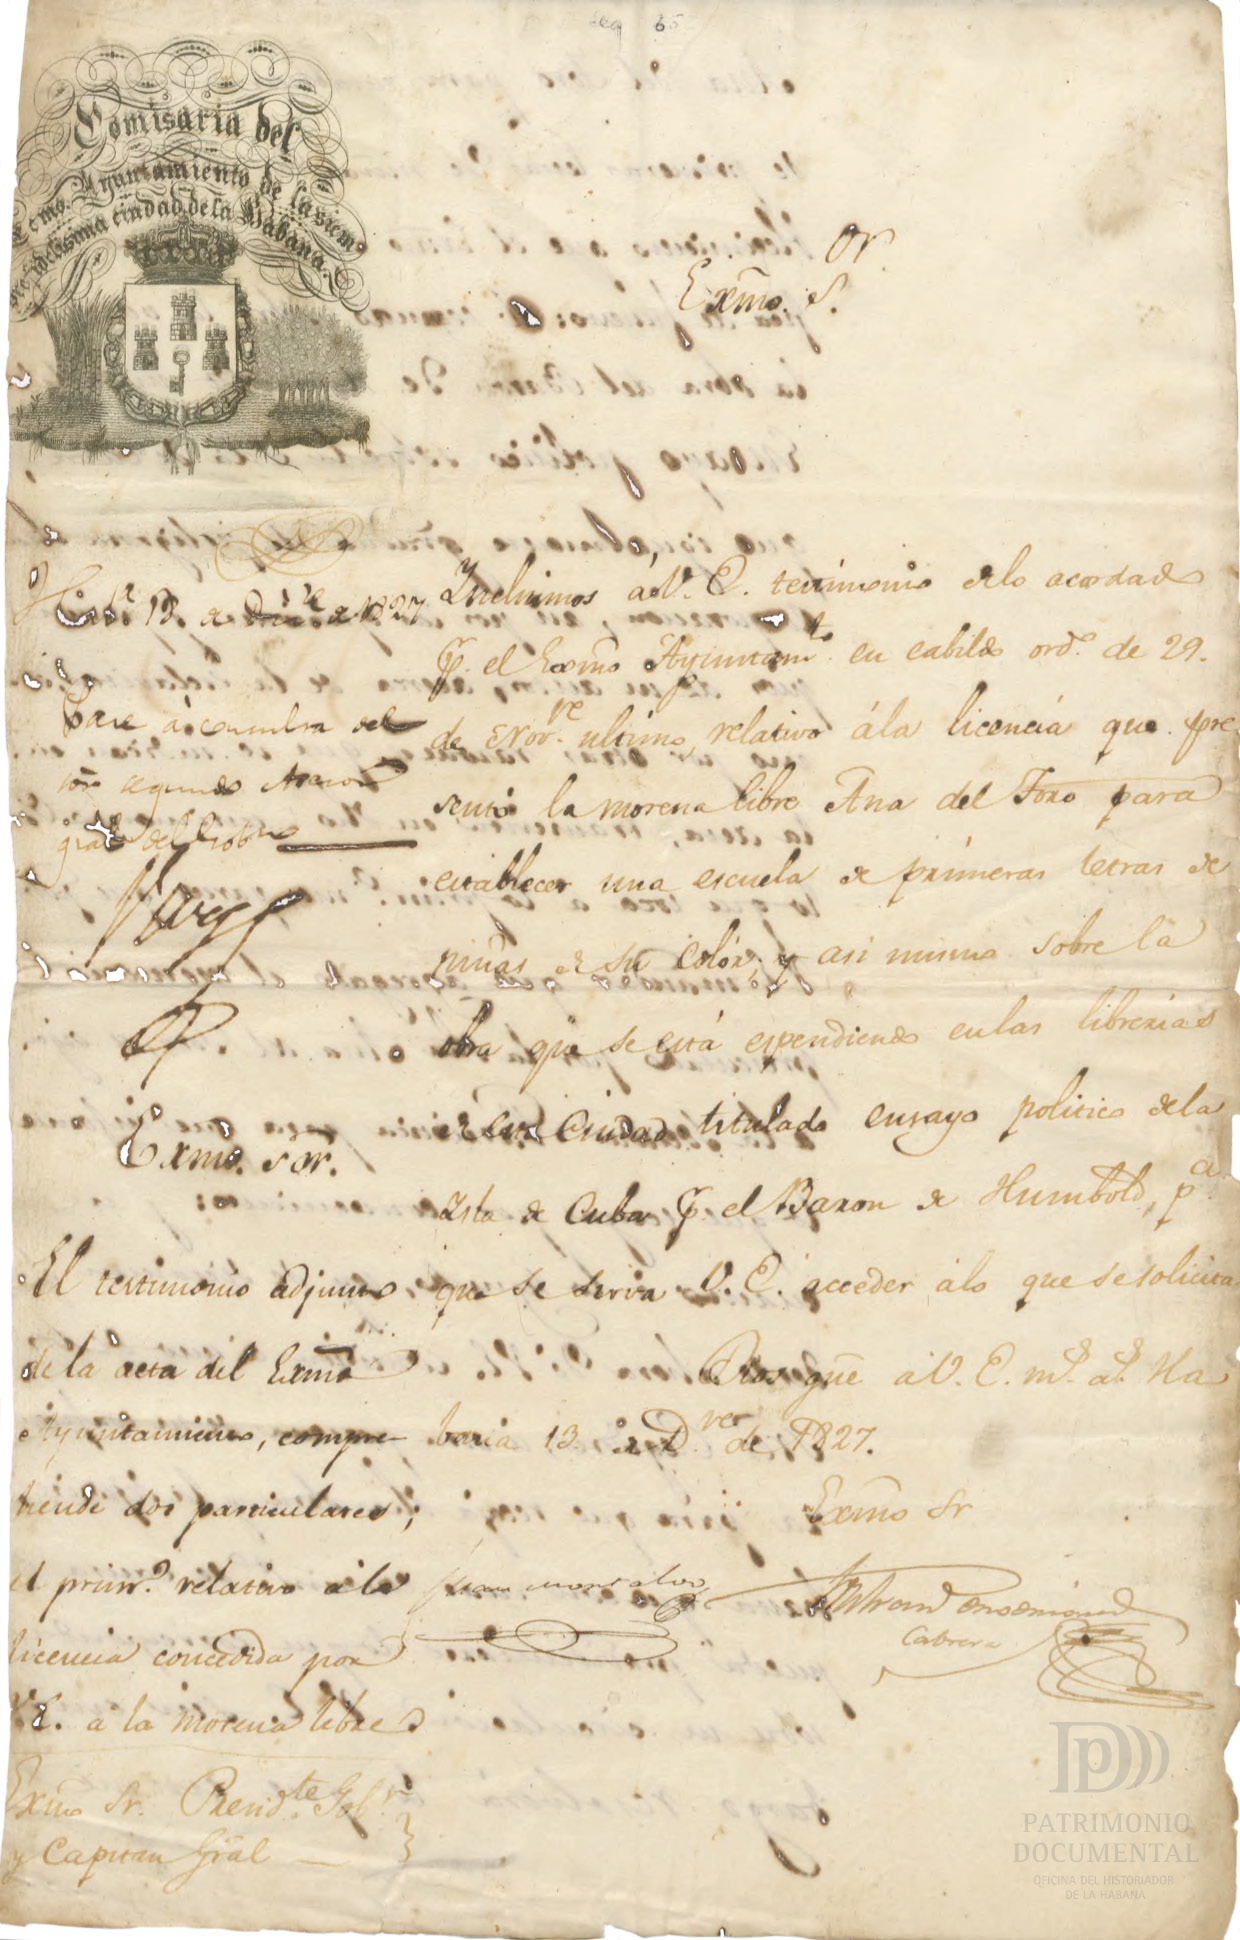 Leg 65
Comisaria del
Excmo. Ayuntamiento de la siem
pre fidelisima ciudad de la Habana.
Exmõ. S.or
Hab.a 13 de Dic.e de 1827
Pase á consulta del
Sõr segundo Asesor
gral del Gobno
Vives
Incluimos á V. E. testimonio delo acordado
p. el Exmõ Ayuntam.to en cabildo ord.o de 29.
de Nov.re ultimo, relativo ála licencia que pre
sentó la morena libre Ana del Toro para
establecer una escuela de primeras letras de
niñas de su color; y asi mismo sobre la
obra que se está espendiendo enlas librerias
de esta Ciudad titulada ensayo politico dela
Isla de Cuba p. el Baron de Humbold, p.a
que se sirva V. E. acceder álo que se solicita
Dios gũe a V. E. m.s a.s Ha
bana 13 de D.vre de 1827.
Exmõ Sr
Juan Montalvo
Cabrera
Exmo. Sor.
El testimonio adjunto
de la acta del Exmõ
Ayuntamiento, compre
hende dos particulares;
el prim.o relativo a la
licencia concedida por
V.E. a la morena libre
Exmõ Sr. Presid.te Gob.r
y Capitan Grãl
PATRIMONIO
DOCUMENTAL
OFICINA DEL HISTORIADOR
DE LA HABANA